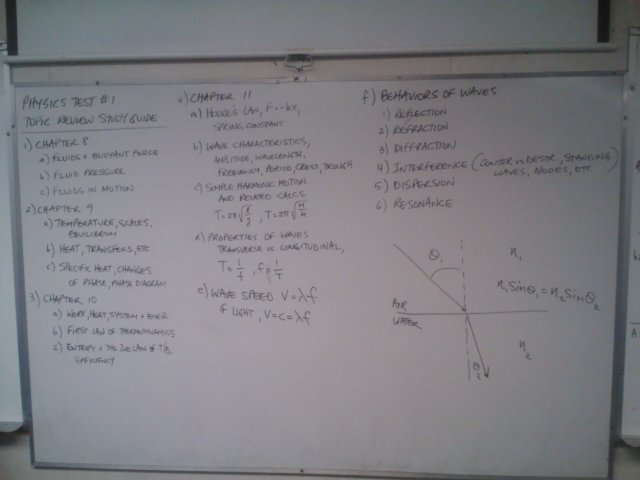 PHYSICS TEST #1
TOPIC REVIEW STUDY GUIDE
1) CHAPTER 8
a) FLUIDS + BUOYANT FORCE
b) FLUID PRESSURE
c) FLUIDS IN MOTION
2) CHAPTER 9
a) TEMPERATURE, SCALES,
EQUILIBRIUM
b) HEAT, TRANSFERS, ETC.
c) SPECIFIC HEAT, CHANGES
OF PHASE, PHASE DIAGRAM
3) CHAPTER 10
a) WORK, HEAT, SYSTEM + ENVIR.
b) FIRST LAW OF THERMODYNAMICS
c) ENTROPY + THE 2ND LAW OF T/D,
EFFICIENCY
4) CHAPTER 11
a) HOOKE'S LAW, F=-kx,
SPRING CONSTANT
b) WAVE CHARACTERISTICS,
AMPLITUDE, WAVELENGTH,
FREQUENCY, PERIOD, CREST, TROUGH
c) SIMPLE HARMONIC MOTION
AND RELATED CALCS
T=2π√(l/g), T=2π√(m/k)
d) PROPERTIES OF WAVES
TRANSVERSE VS LONGITUDINAL,
T=1/f, f=1/T
e) WAVE SPEED V=λf
IF LIGHT, V=C=λf
f) BEHAVIORS OF WAVES
1) REFLECTION
2) REFRACTION
3) DIFFRACTION
4) INTERFERENCE (CONSTR. VS DESTR., STANDING
WAVES, NODES, ETC.
5) DISPERSION
6) RESONANCE
θ₁
n₁
n₁Sinθ₁=n₂Sinθ₂
AIR
WATER
n₂
θ₂